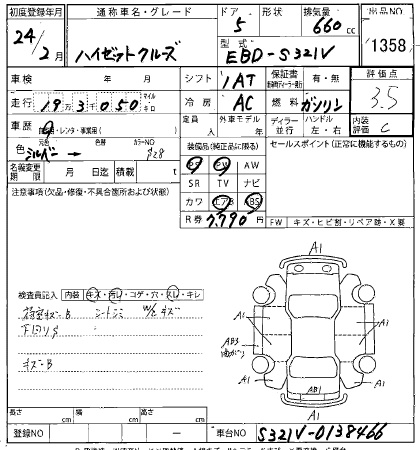 初度登録年月 通称車名・グレード ドア 形状 排気量 出品NO
24/2月 ハイゼットクルーズ 5 660cc 1358
型式 EBD-S321V
車検 年 月 シフト 1AT 保証書 有・無 評価点 3.5
走行 19万3千050 マイル キロ 冷房 AC 燃料 ガソリン
車歴 自家用・レンタ・事業用( ) 定員 人 外車モデル 年 ディーラー 並行 ハンドル 左・右 内装評価 C
色 元色 シルバー 色替 カラーNO S28 装備品(純正品に限る) セールスポイント(正常に機能するもの)
PS PW AW
名義変更期限 月 日迄 積載 t SR TV ナビ
注意事項(欠品・修復・不具合箇所および状態) カワ エアB ABS
R券 7,790円 FW キズ・ヒビ割・リペア跡・X要
検査員記入 内装 キズ・汚レ・コゲ・穴・スレ・キレ
荷室キズ-B シートシミ W/Lキズ
下回りS
キズ-B
A1
A1 A1
AB3
A1 A1
AB1
A1
長さ cm 幅 cm 高さ cm
登録NO ー 車台NO S321V-0138466